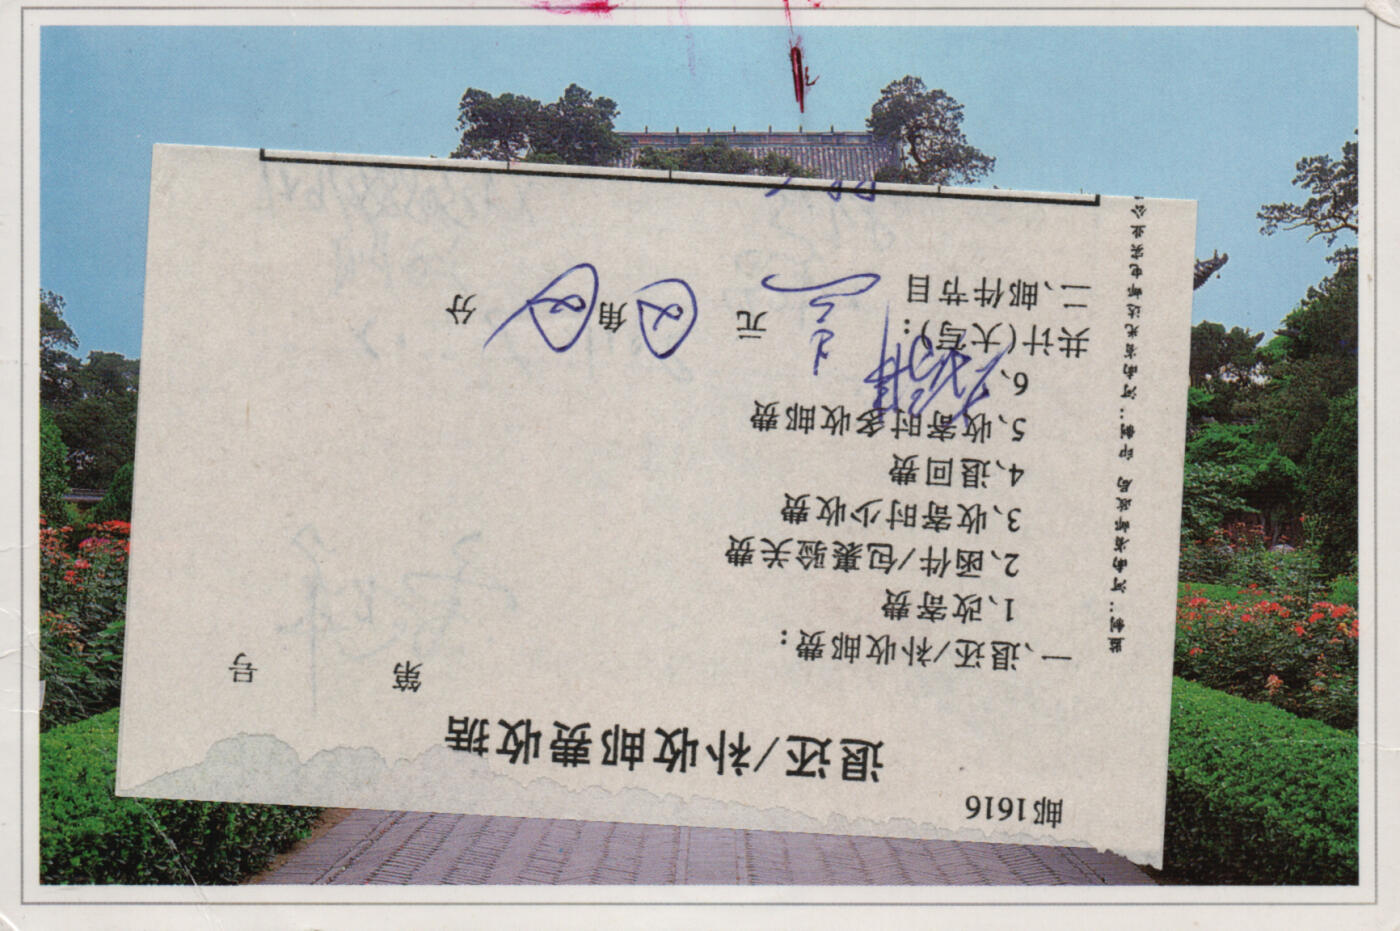 邮1616
退还/补收邮费收据
第 号
一、退还/补收邮费：
1、改寄费
2、函件/包裹验关费
3、收寄时少收费
4、退回费
5、收寄时多收邮费
6、
共计(大写)： 元 角 分
二、邮件节目
监制：河南省邮政局 印制：河南省光达邮电实业公